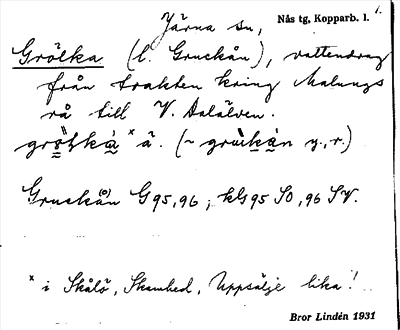 Järna sn, Nås tg, Kopparb. l. 1.
Grölka (l. Gruckån), vattendrag
från trakten kring Malungs
rå till V. Dalälven.
ä. (~ gruckån y., r.)
Gruckån G95,96; kG95 SO, 96 SV.
x i Skålö, Skamhed, Uppsälje lika!
Bror Lindén 1931